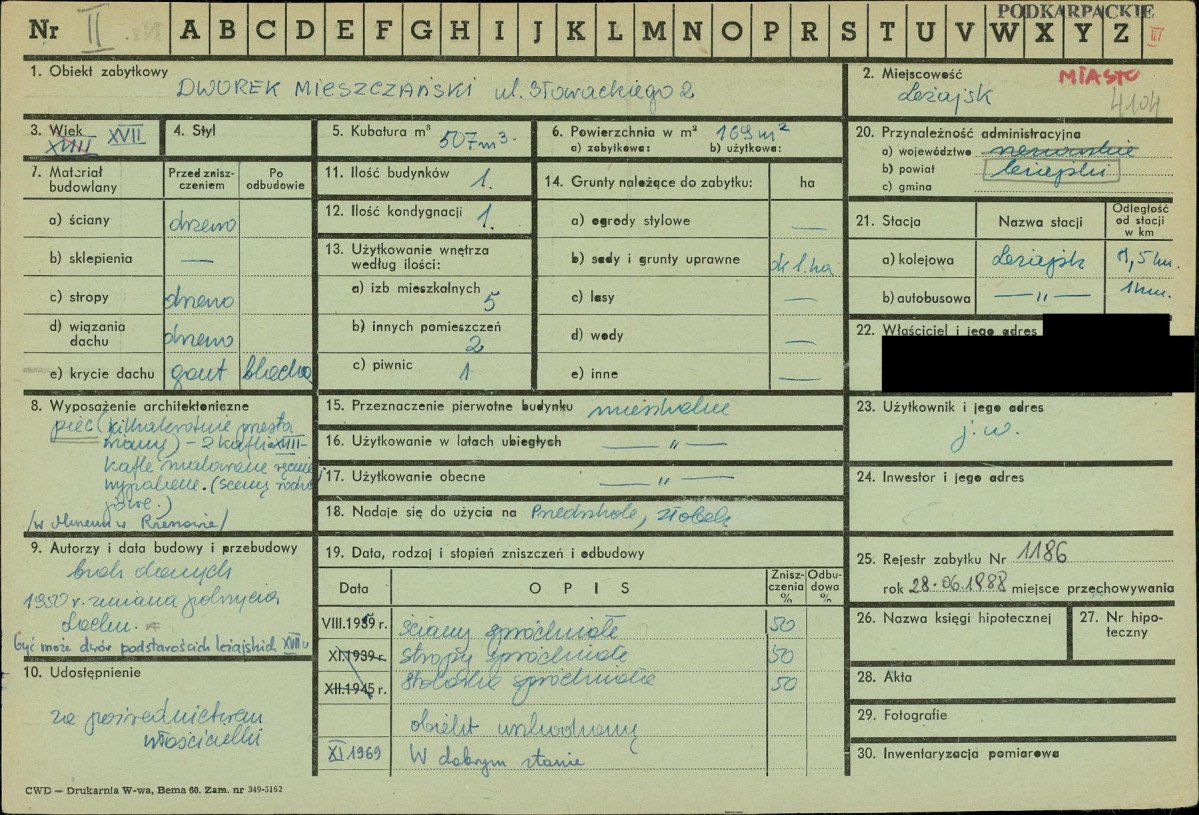 PODKARPACKIE
Nr II A B C D E F G H I J K L M N O P R S T U V W X Y Z III
1. Obiekt zabytkowy
DWOREK MIESZCZAŃSKI ul. Słowackiego 2
2. Miejscowość
MIASTO
Leżajsk
4104
3. Wiek
XVIII XVII
4. Styl
5. Kubatura m³
507 m³.
6. Powierzchnia w m² 169 m²
a) zabytkowa: b) użytkowa:
7. Materiał budowlany
Przed zniszczeniem
Po odbudowie
a) ściany drzewo
b) sklepienia —
c) stropy drzewo
d) wiązania dachu drzewo
e) krycie dachu gont blacha
8. Wyposażenie architektoniczne
piec (kilkakrotnie przesta
wiany) – 2 kafli XVIII-
kafle malowane ręcznie
wypalane. (sceny rodza
jowe.)
/w Muzeum w Rzeszowie/
9. Autorzy i data budowy i przebudowy
brak danych
1950 r. zmiana pokrycia
dachu.
być może dwór podstarościch leżajskich XVII w
10. Udostępnienie
za pośrednictwem
właścicielki
11. Ilość budynków 1.
12. Ilość kondygnacji 1.
13. Użytkowanie wnętrza
według ilości:
a) izb mieszkalnych 5
b) innych pomieszczeń 2
c) piwnic 1
14. Grunty należące do zabytku: ha
a) ogrody stylowe —
b) sady i grunty uprawne ok 1. ha
c) lasy —
d) wody —
e) inne —
15. Przeznaczenie pierwotne budynku mieszkalne
16. Użytkowanie w latach ubiegłych — „ —
17. Użytkowanie obecne — „ —
18. Nadaje się do użycia na Przedszkole, żłobek
19. Data, rodzaj i stopień zniszczeń i odbudowy
Data
O P I S
Zniszczenia %
Odbudowa %
VIII.1959 r. ściany spróchniałe 50
XI.1939 r. stropy spróchniałe 50
XII.1945 r. stolarka spróchniała 50
obiekt uszkodzony
XI 1969 W dobrym stanie
20. Przynależność administracyjna
a) województwo rzeszowskie
b) powiat leżajski
c) gmina
21. Stacja
Nazwa stacji
Odległość od stacji w km
a) kolejowa Leżajsk 1,5 km.
b) autobusowa — „ — 1 km.
22. Właściciel i jego adres
23. Użytkownik i jego adres
j. w.
24. Inwestor i jego adres
25. Rejestr zabytku Nr 1186
rok 28.06.1988 miejsce przechowywania
26. Nazwa księgi hipotecznej
27. Nr hipoteczny
28. Akta
29. Fotografie
30. Inwentaryzacja pomiarowa
CWD — Drukarnia W-wa, Bema 60. Zam. nr 349-5162